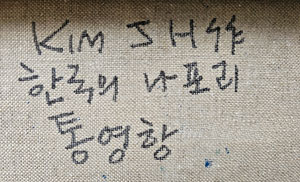 KIM J H 作
한국의 나포리
통영항